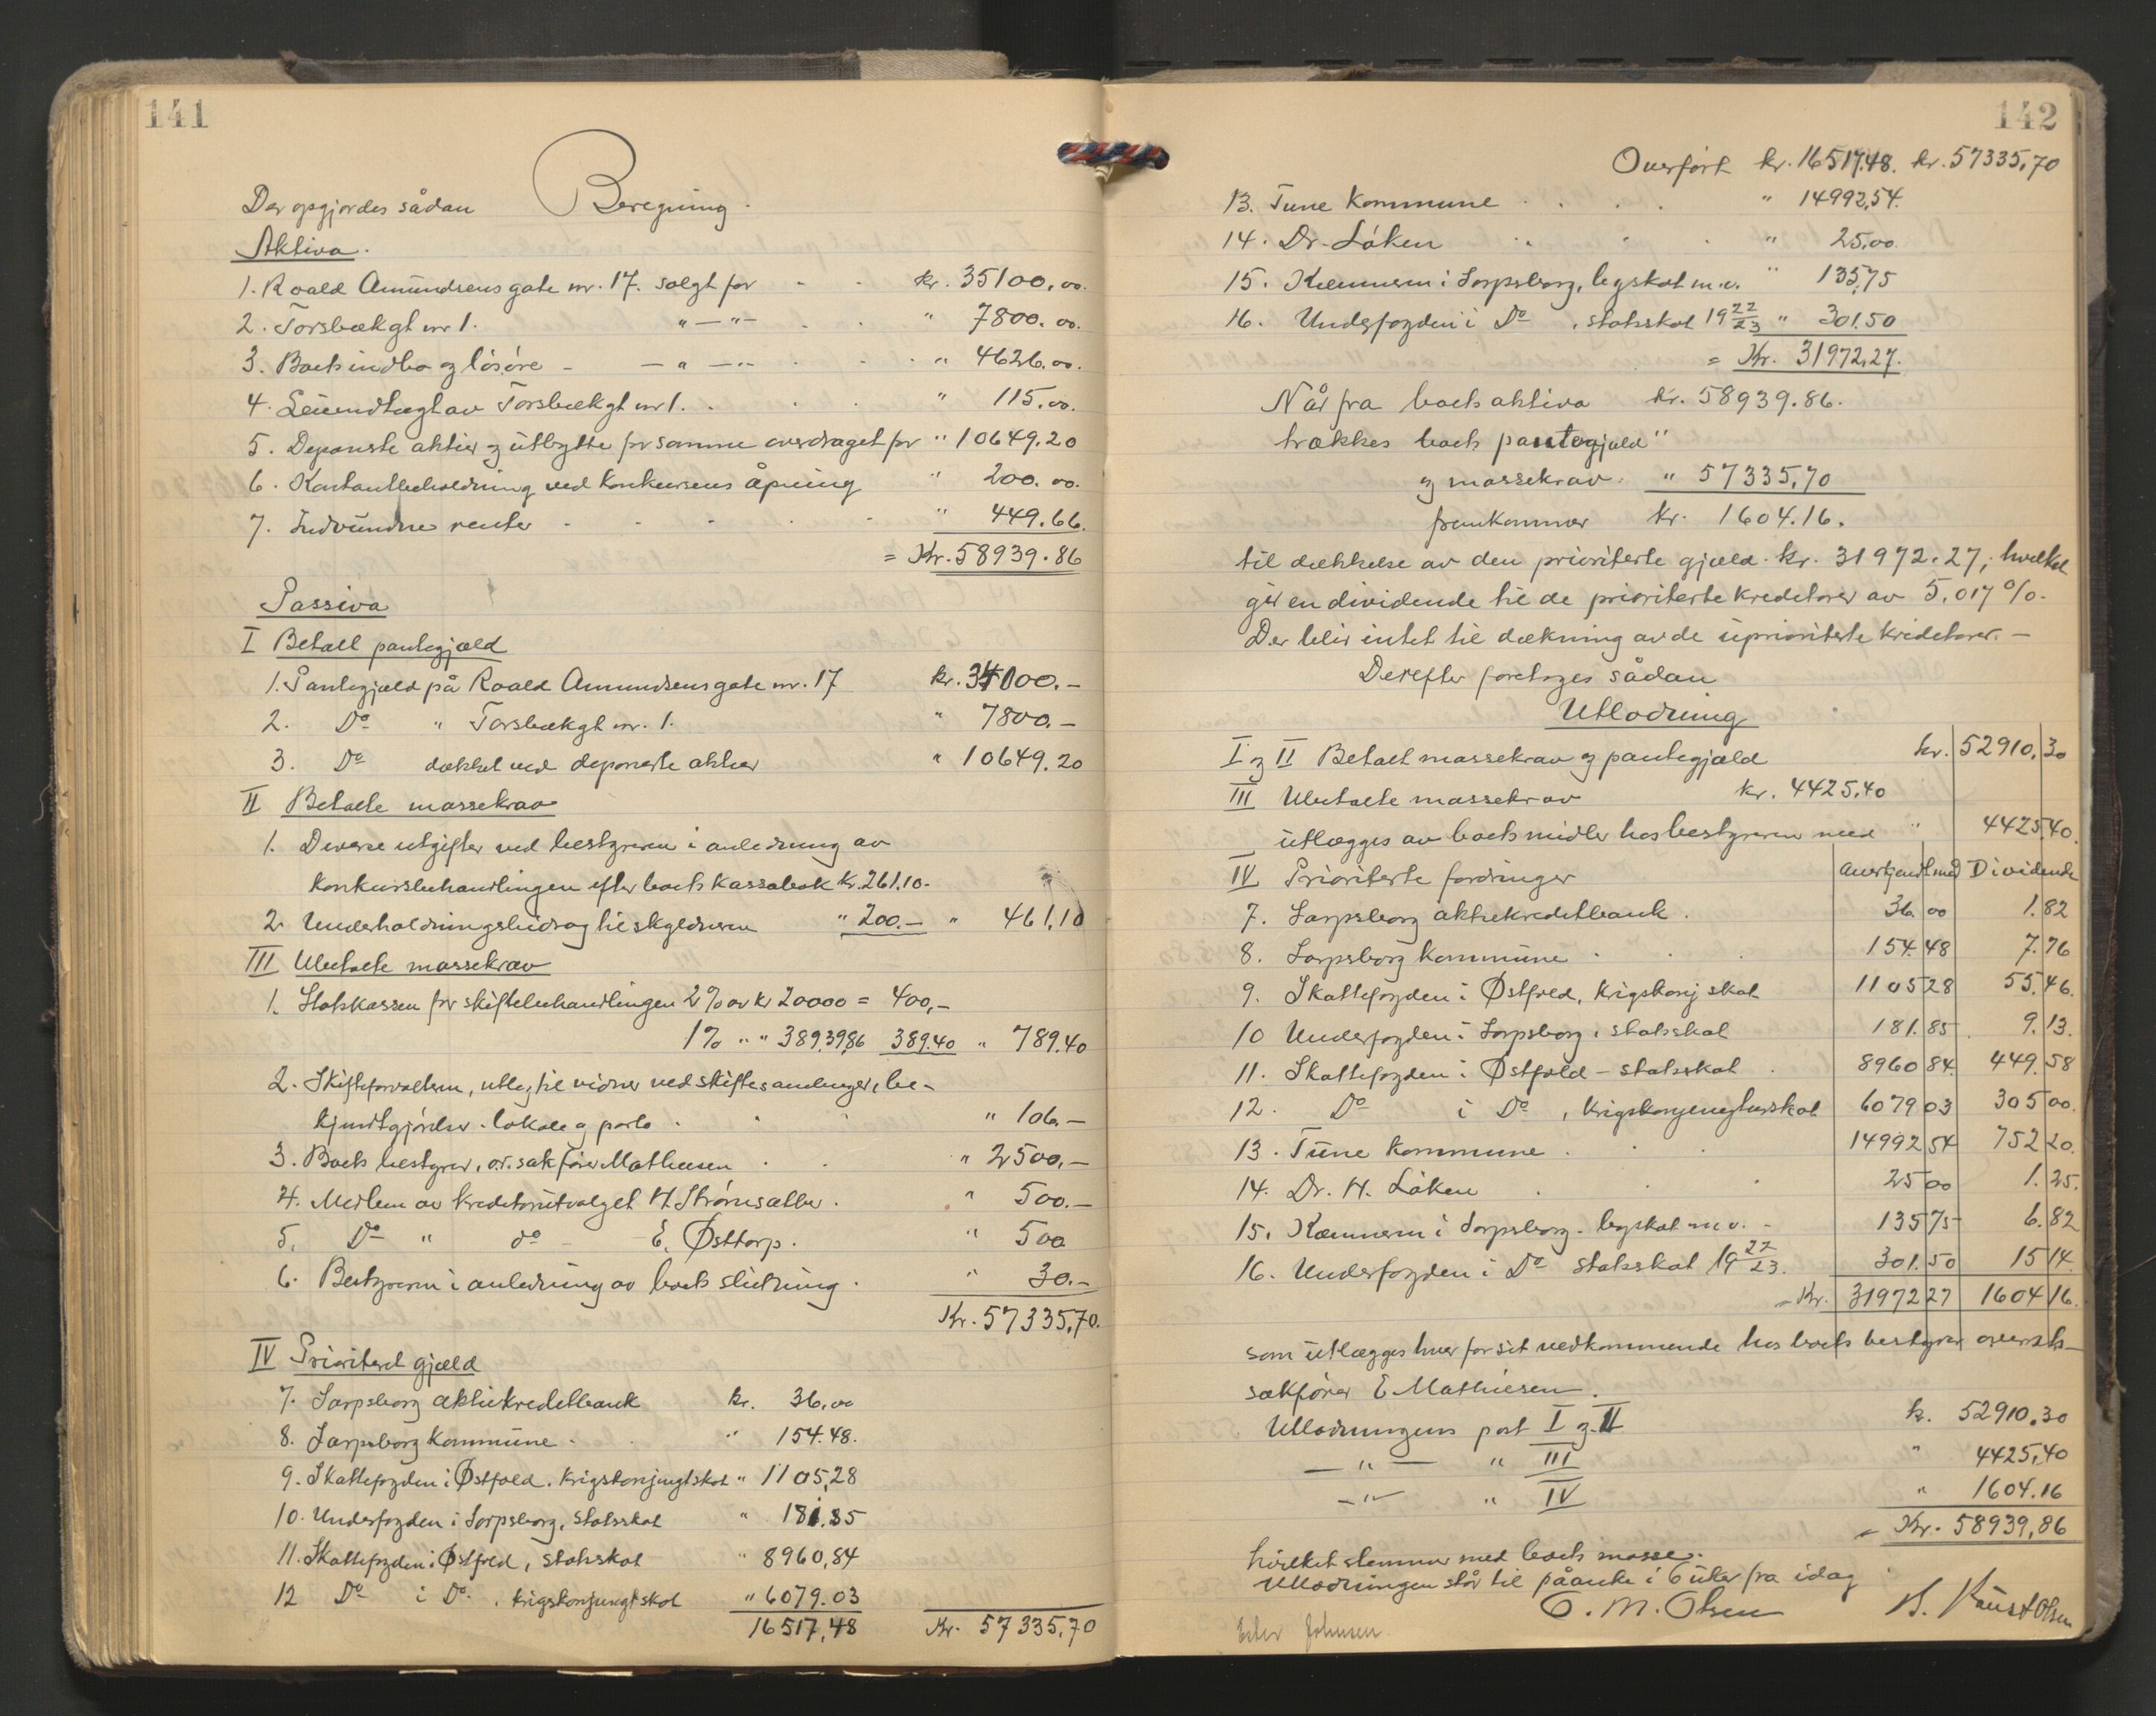 141
Der opgjordes sådan Beregning.
Aktiva.
1. Roald Amundsens gate nr. 17. solgt for kr. 35100,00.
2. Torsbækgt nr 1. " — " — " 7800.00.
3. Boets indbo og løsøre - — " — " — " 4626.00.
4. Leieindtægt av Torsbækgt nr 1. " 115.00.
5. Deponerte aktier og utbytte for samme overdraget for " 10649.20
6. Kontantbeholdning ved konkursens åpning " 200.00.
7. Indvundne renter " 449.66.
= Kr. 58939.86
Passiva
I Betalt pantegjæld
1. Pantegjæld på Roald Amundsens gate nr. 17 kr. 34000.—
2. Do " Torsbækgt nr. 1. " 7800.—
3. Do dækket ved deponerte aktier " 10649.20
II Betalte massekrav
1. Diverse utgifter ved bestyreren i anledning av
konkursbehandlingen efter boets kassabok kr. 261.10.
2. Underholdningsbidrag til skyldneren " 200.— " 461,10
III Ubetalte massekrav
1. Statskassen for skiftebehandlingen 2% av kr 20000 = 400,—
1% " " 38939,86 389.40 " 789.40
2. Skifteforvalteren, utlæg til vidner ved skiftesamlinger, be-
kjendtgjørelser. lokale og porto. " 106.—
3. Boets bestyrer, o.r. sakfører Mathiesen " 2500,—
4. Medlem av kreditorutvalget H. Strømsæther. " 500.—
5. Do " do - E. Østtorp. " 500
6. Bestyreren i anledning av boets slutning. " 30.—
Kr. 57335,70.
IV Prioritert gjæld
7. Sarpsborg aktiekreditbank kr. 36,00
8. Sarpsborg kommune. " 154.48.
9. Skattefogden i Østfold. krigskonjungtskat " 1105,28
10. Underfogden i Sarpsborg, statsskat " 181.85
11. Skattefogden i Østfold, statsskat " 8960,84
12 Do i Do. , krigskonjungtskat " 6079.03
16517,48 Kr. 57335,70
142
Overført kr. 16517.48. kr. 57335,70
13. Tune kommune " 14992,54.
14. Dr. Løken " 25,00.
15. Kæmneren i Sarpsborg, bygskat m.v. " 135,75
16. Underfogden i Do , statsskat 19 22/23 " 301.50
= Kr. 31972,27.
Når fra boets aktiva kr. 58939.86.
trækkes boets pantegjæld "
og massekrav. " 57335,70
fremkommer kr. 1604.16.
til dækkelse av den prioriterte gjæld. kr. 31972.27, hvilket
gir en dividende til de prioriterte kreditorer av 5,017 %.
Der blir intet til dækning av de uprioriterte kreditorer. —
Derefter foretoges sådan
Utlodning
I og II Betalt massekrav og pantegjæld kr. 52910,30
III Ubetalte massekrav kr. 4425.40
utlægges av boets midler hos bestyreren med " 4425.40.
IV Prioriterte fordringer anerkjendt med Dividende
7. Sarpsborg aktiekreditbank. 36.00 1.82
8. Sarpsborg kommune 154.48 7.76
9. Skattefogden i Østfold, krigskonj skat 1105 28 55.46.
10 Underfogden i Sarpsborg, statsskat 181.85 9.13.
11. Skattefogden i Østfold - statsskat 8960 84 449.58
12. Do i Do , krigskonjungturskat 6079 03 305 00.
13. Tune kommune 14992 54 752 20.
14. Dr. H. Løken 25 00 1.25.
15. Kæmneren i Sarpsborg. bygskat m.v. - 135 75 6.82
16. Underfogden i Do statsskat 19 22/23. 301.50 15 14
= Kr. 31972 27 1604 16.
som utlægges hver for sit vedkommende hos boets bestyrer overrets-
sakfører E Mathiesen.
Utlodningens post I og II kr. 52910.30
— " — " III " 4425,40
— " — " IV " 1604.16
= Kr. 58939,86
hvilket stemmer med boets masse.
Utlodningen står til påanke i 6 uker fra idag
O. M. Olsen
Ester Johnsen.